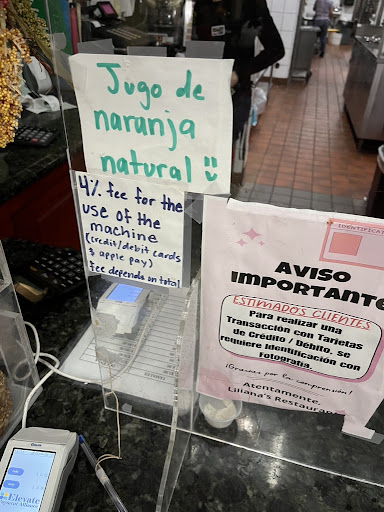 Jugo de
naranja
natural
4% fee for the
use of the
machine
(credit/debit cards
$ apple pay)
fee depends on total
AVISO
IMPORTANTE
ESTIMADOS CLIENTES
Para realizar una
Transacción con Tarjetas
de Crédito / Débito. se
requiere Identificación con
Fotografía.
¡Gracias por la comprensión!
Atentamente,
Liliana's Restaurant
Elevate